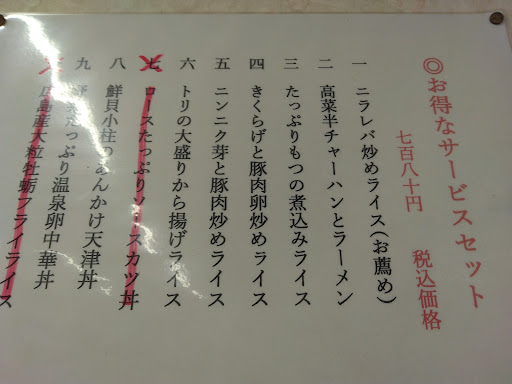 ◎お得なサービスセット
七百八十円 税込価格
一 ニラレバ炒めライス(お薦め)
二 高菜半チャーハンとラーメン
三 たっぷりもつの煮込みライス
四 きくらげと豚肉卵炒めライス
五 ニンニク芽と豚肉炒めライス
六 トリの大盛りから揚げライス
七 ロースたっぷりソースカツ丼
八 鮮貝小柱のあんかけ天津丼
九 たっぷり温泉卵中華丼
広島産大粒牡蛎フライライス